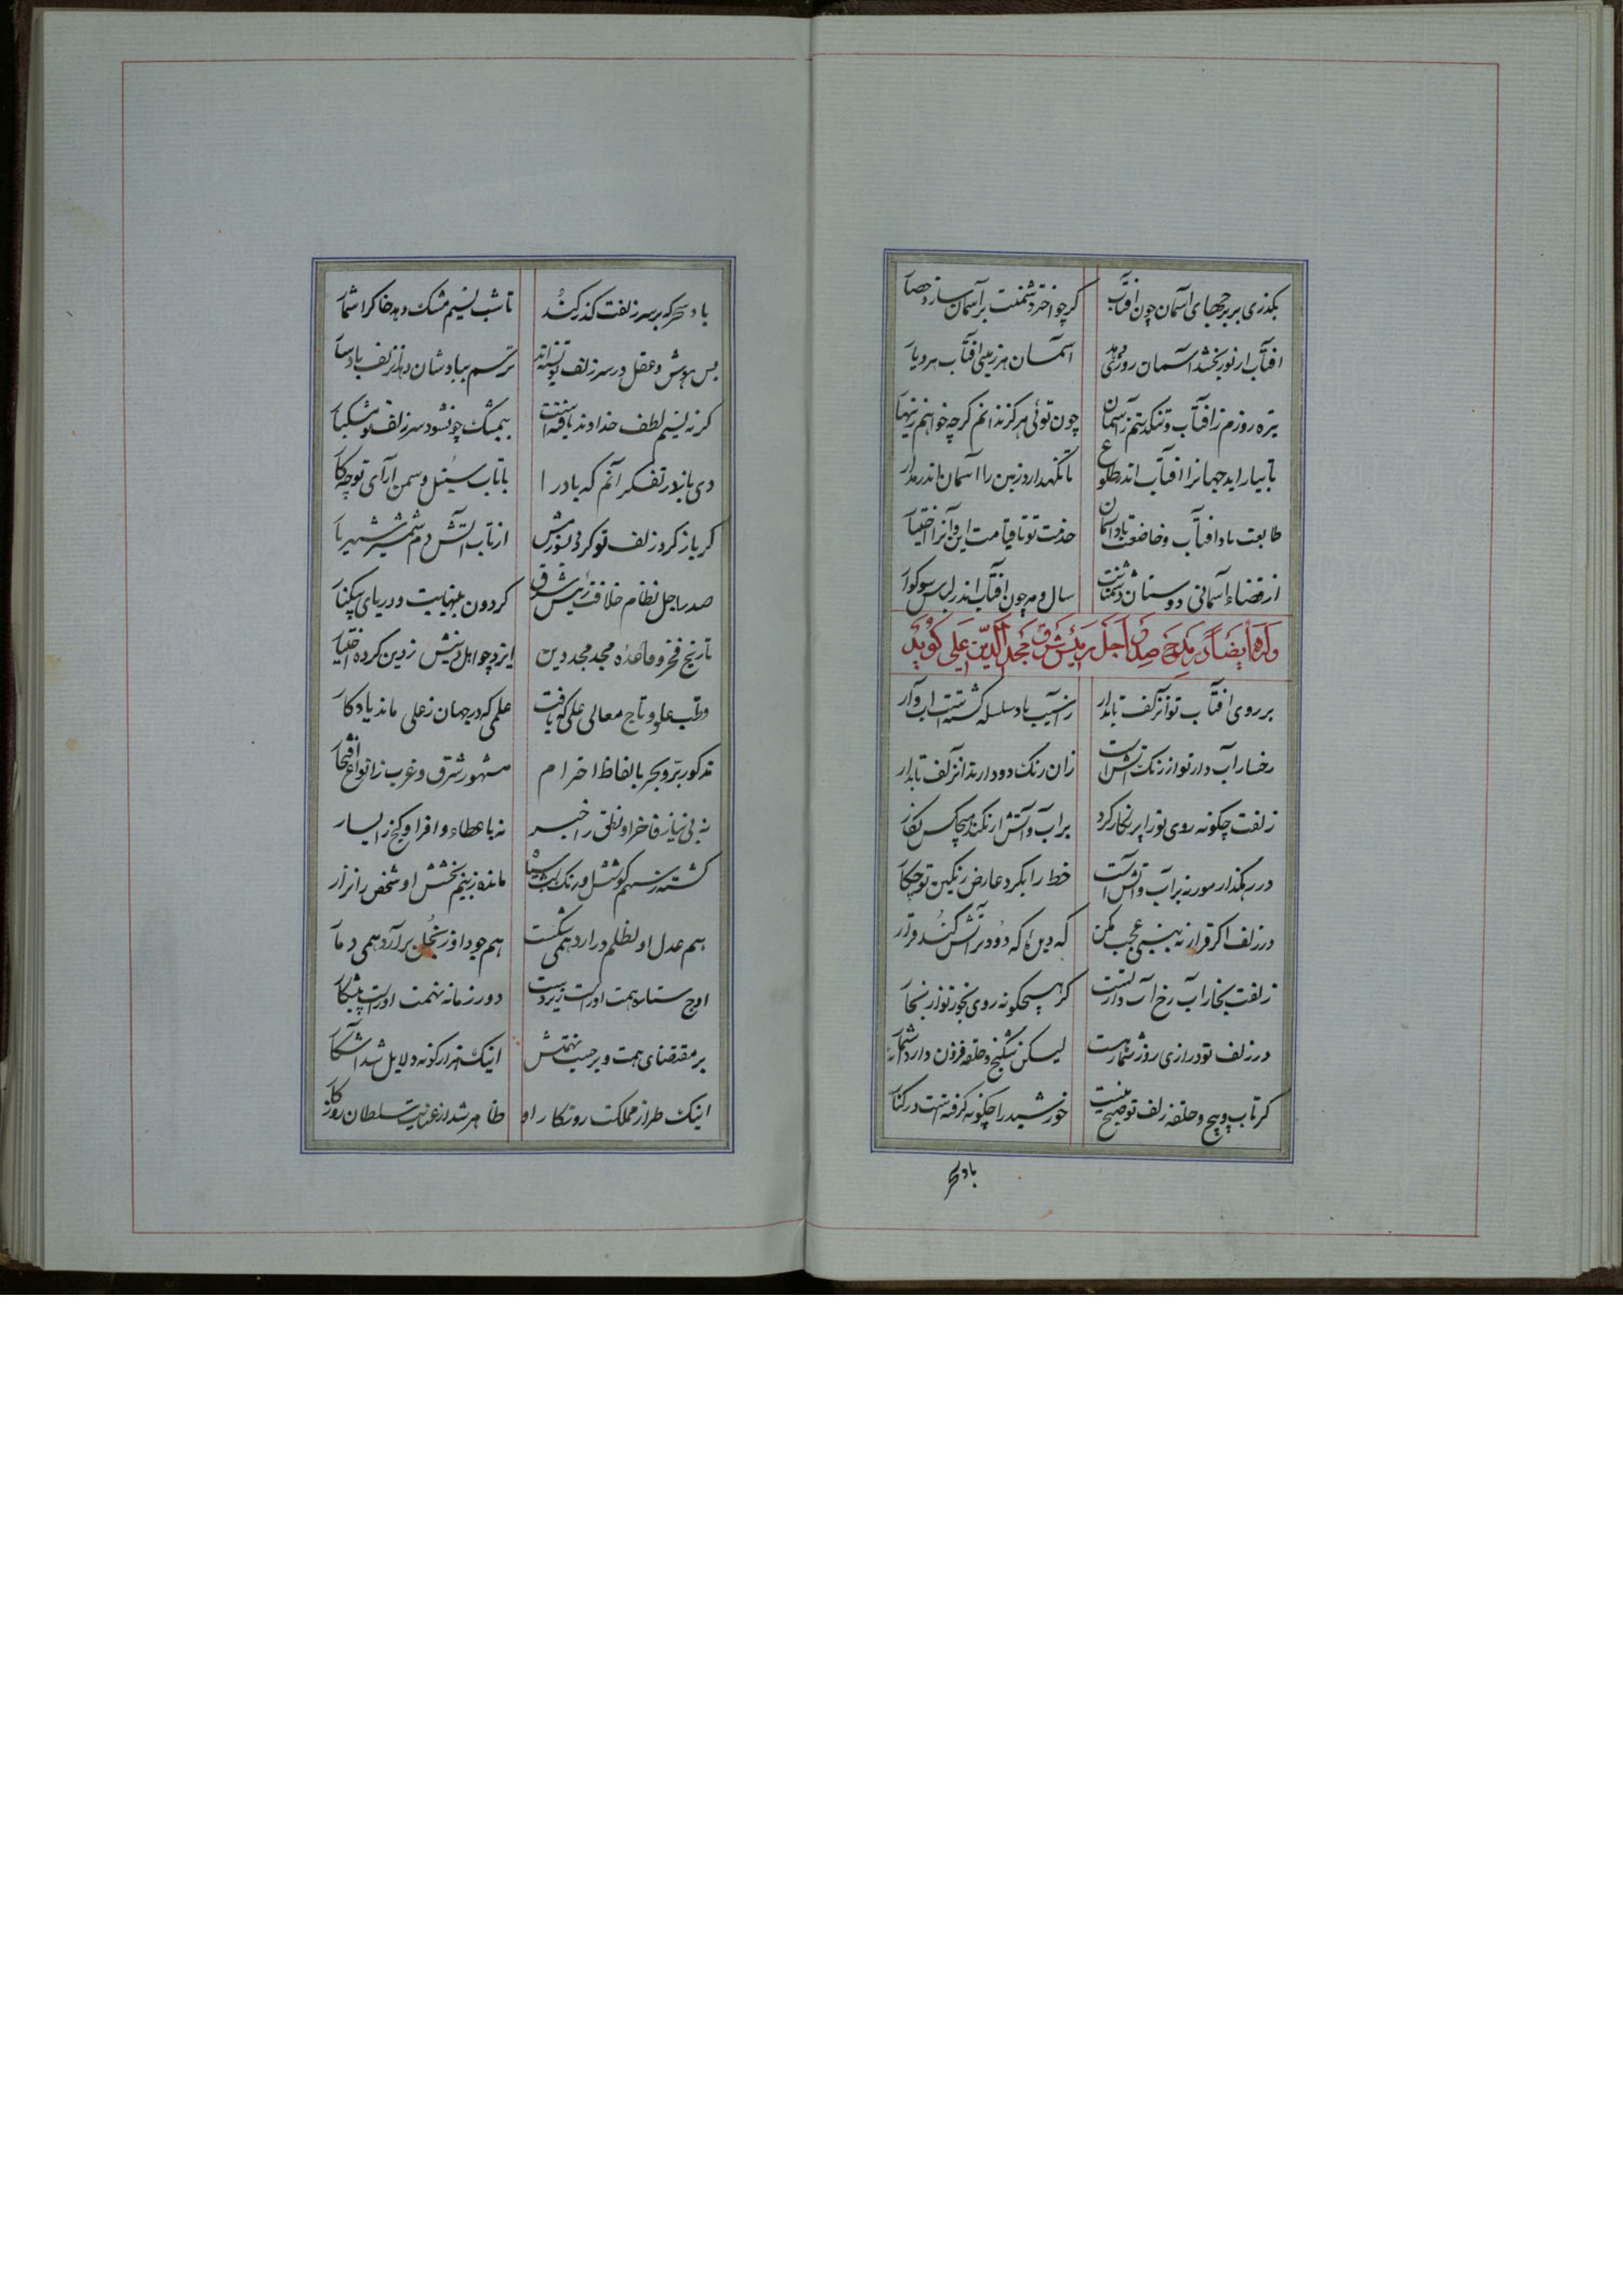 بگذری بر برجهای آسمان چون آفتاب گر چو اختر دشمنت بر آسمان سازد حصار
آفتاب ار نور بخشد آسمان روزی دهد آسمان هر زمینی آفتاب هر دیار
تیره روزم ز آفتاب و تنگ دستم ز آسمان چون توئی هرگز ندانم گرچه خواهم زینهار
تا بیاراید جهانرا آفتاب اندر طلوع تا نگهدارد زمین را آسمان اندر مدار
طایعت باد آفتاب و خاضعت باد آسمان خدمت تو تا قیامت این و آنرا اختیار
از قضاء آسمانی دوستان و دشمنانت سال و مه چون آفتاب اندر لباس سوکوار
وله ایضاً در مدح صدر اجل رئیس شرق مجد الدین علی گوید
بر روی آفتاب تو آن زلف تابدار ز آسیب باد سلسله گشتست آب وار
رخسار آب دار تو از رنگ آتش است زان رنگ دود دارند آن زلف تابدار
زلفت چگونه روی تو را پر نگار کرد بر آب و آتش ار نکند هیچکس نگار
در رهگذار مور نه بر آب و آتش است خط را بگرد عارض رنگین تو چکار
در زلف اگر قرار نه بینی عجب مکن که دیده که دود بر آتش کند قرار
زلفت بخار آب رخ آب دار تست گر هیچگونه روی بخور تو از بخار
در زلف تو درازی روز شمار هست لیکن شکنج و حلقه فزون دارد از شمار
گر تاب و پیچ و حلقه زلف تو صبح نیست خورشید را چگونه گرفته است در کنار
باد سحر
باد سحر که بر سر زلفت گذر کند تا شب نسیم مشک دهد خاک را شمار
بس هوش و عقل در سر زلف تو بسته‌اند ترسم بباد شان دهد آن زلف باد سار
گر نه نسیم لطف خداوند یافته است بی مشک چون شود سر زلف تو مشکبار
دی باز در تفکر آنم که باد را با تاب سنبل و سمن آرای تو چه کار
گر باز کرد زلف تو کردی بسوزمش از تاب آتش دم شمشیر شهریار
صدر اجل نظام خلافت رئیس شرق گردون بی‌نهایت و دریای بیکنار
تاریخ فخر و قاعده مجد مجد دین ایزد چو اهل دینش ز دین کرده اختیار
قطب علو و تاج معالی علی که یافت علمی که در جهان ز علی ماند یادگار
مذکور بر و بحر بالفاظ احترام مشهور شرق و غرب ز انواع افتخار
نه بی نیاز فاخر او نطق را خبر نه با عطاء وافر او گنج را یسار
گشته ز سهم کوشش او رنگ شب سیاه مانده ز بیم بخشش او شخص زر نزار
هم عدل او بظلم در آرد همی شکست هم جود او ز بخل بر آرد همی دمار
اوج ستاره همت او راست زیر دست دور زمانه نهمت او راست پیشکار
بر مقتضای همت و بر حسب نهمتش اینک هزار گونه دلایل شد آشکار
اینک طراز مملکت روزگار او ظاهر شد از عنایت سلطان روزگار